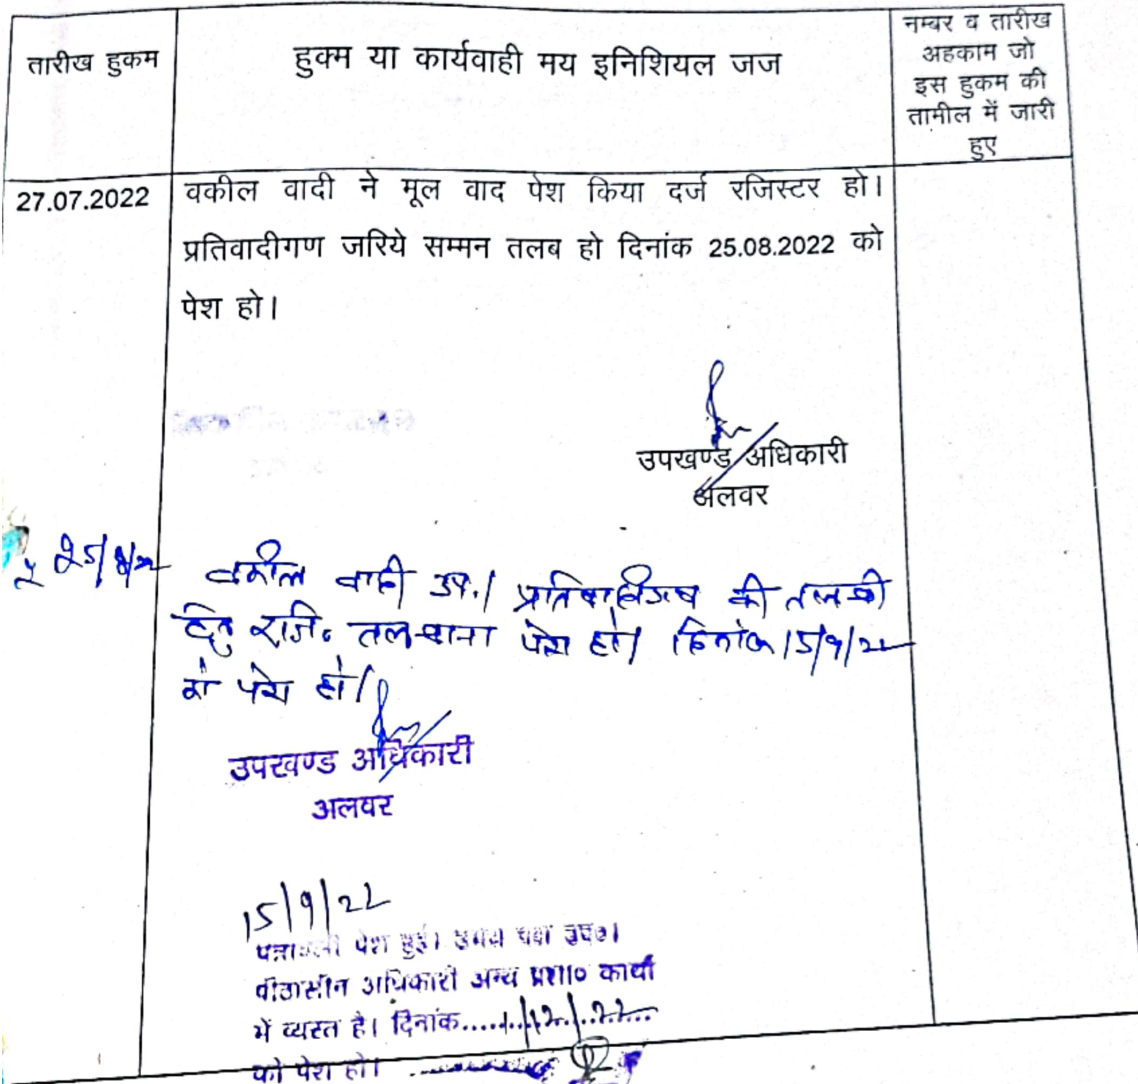 तारीख हुकम
हुक्म या कार्यवाही मय इनिशियल जज
नम्बर व तारीख
अहकाम जो
इस हुकम की
तामील में जारी
हुए
27.07.2022
वकील वादी ने मूल वाद पेश किया दर्ज रजिस्टर हो।
प्रतिवादीगण जरिये सम्मन तलब हो दिनांक 25.08.2022 को
पेश हो।
उपखण्ड अधिकारी
अलवर
25/8/22
वकील वादी उप.। प्रतिवादीगण की तलबी
हेतु रजि. तलबाना पेश हो। दिनांक 15/9/22
को पेश हो।
उपखण्ड अधिकारी
अलवर
15/9/22
पत्रावली पेश हुई। उभय पक्ष उप०।
पीठासीन अधिकारी अन्य प्रशा० कार्यो
में व्यस्त है। दिनांक.....1/12/22....
को पेश हो।